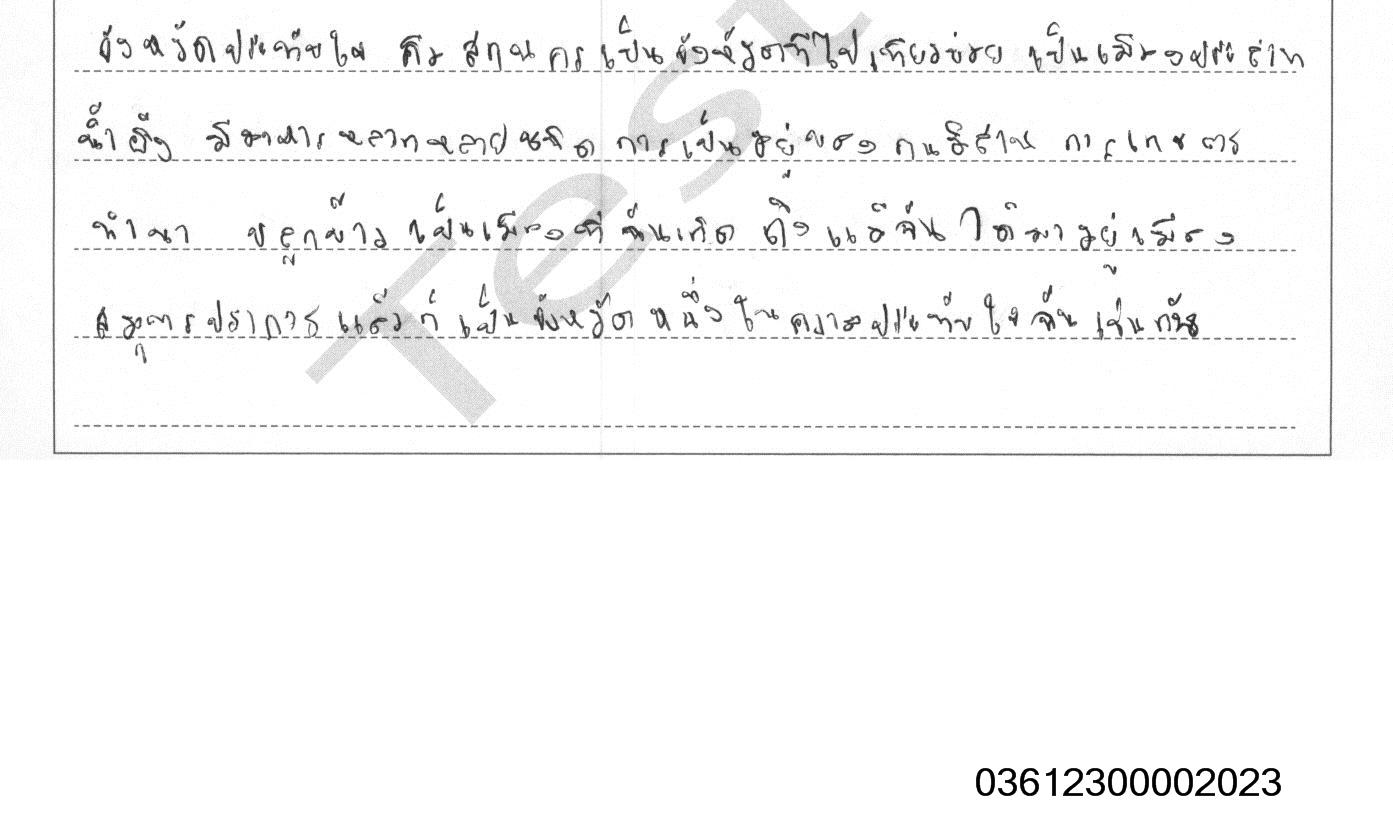 จังหวัดประทับใจ คือ สกลนคร เป็นจังหวัดที่ไปเที่ยวบ่อย เป็นเมืองปราสาท
น้ำผึ้ง มีอาหารหลากหลายชนิด การเป็นอยู่ของคนอีสาน การเกษตร
ทำนา ปลูกข้าว เป็นเมืองที่ฉันเกิด ถึงแม้ฉันได้มาอยู่เมือง
สมุทรปราการ แล้วก็เป็นจังหวัดหนึ่งในความประทับใจฉันเช่นกัน
Test
03612300002023